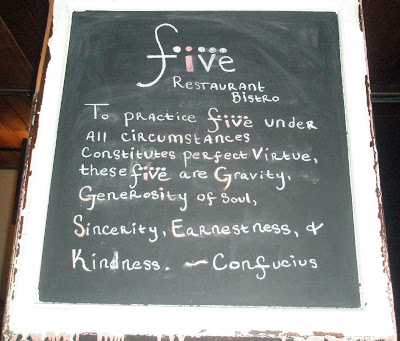 five
Restaurant
Bistro
To practice five under
All circumstances
Constitutes perfect Virtue,
these five are Gravity,
Generosity of Soul,
Sincerity, Earnestness, &
Kindness. — Confucius